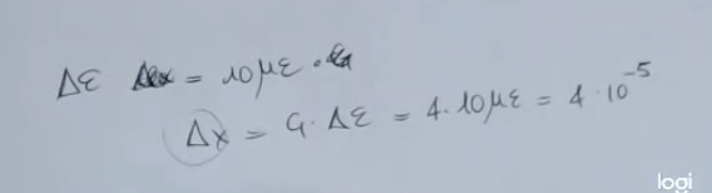 Δε = 10με
Δx = G · Δε = 4 · 10με = 4 · 10⁻⁵
logi